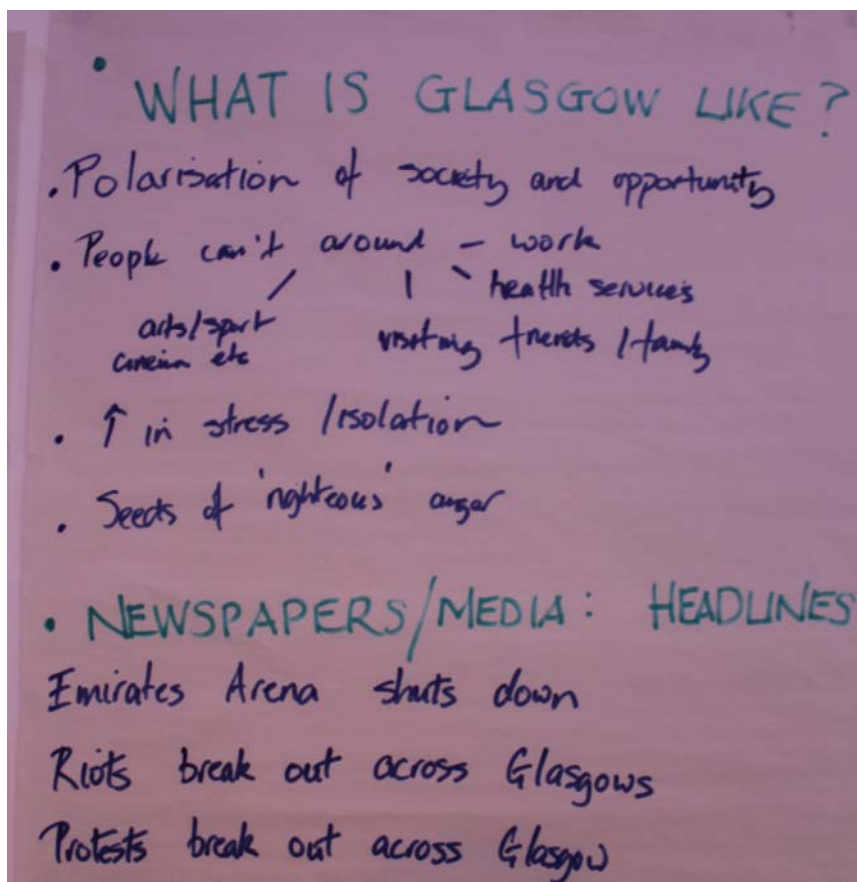 • WHAT IS GLASGOW LIKE?
• Polarisation of society and opportunity
• People can't around – work
health services
arts/sport
visiting friends / family
cinema etc
• ↑ in stress / isolation
• Seeds of 'righteous' anger
• NEWSPAPERS/MEDIA: HEADLINES
Emirates Arena shuts down
Riots break out across Glasgows
Protests break out across Glasgow